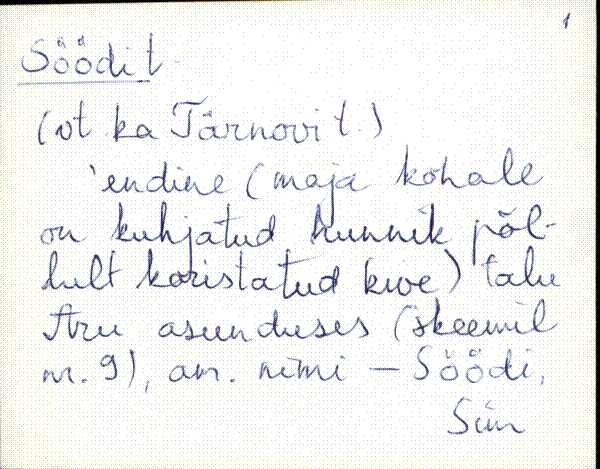 1
Söödit
(vt ka Tärnovit)
'endine (maja kohale
on kuhjatud hunnik põl-
lult koristatud kive) talu
Aru asunduses (skeemil
nr. 9), am. nimi – Söödi,
Siin